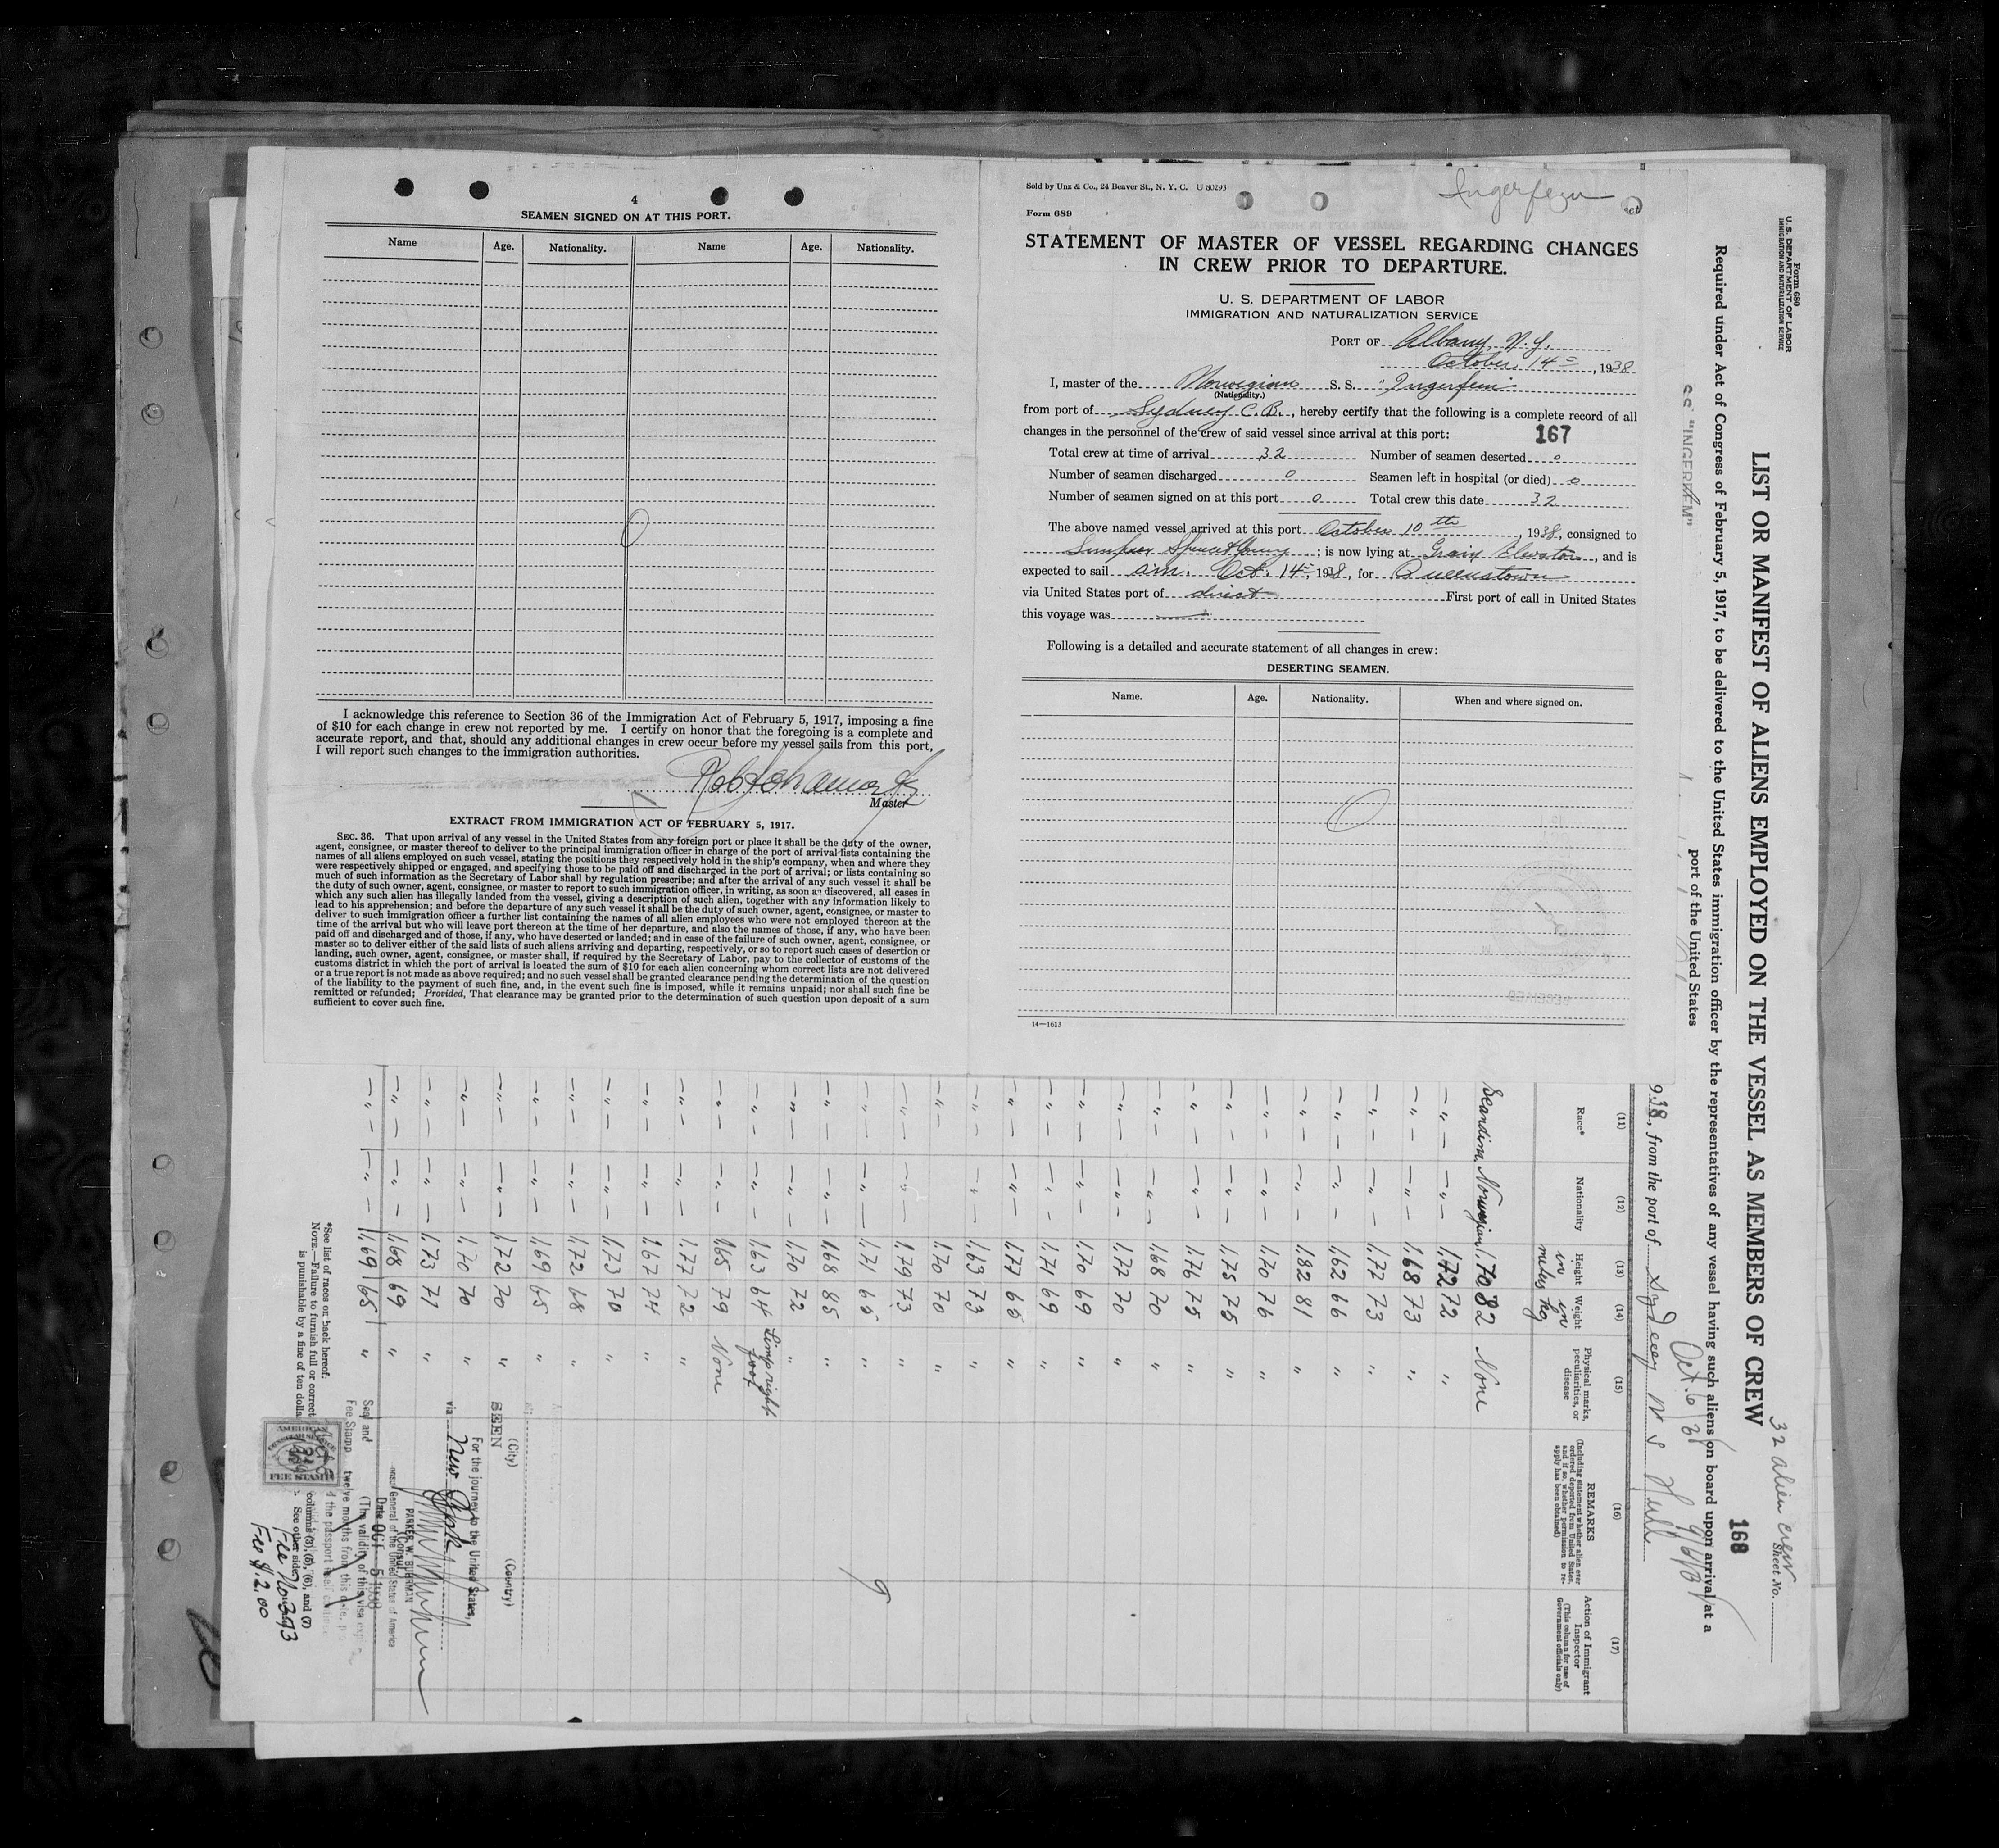 4
SEAMEN SIGNED ON AT THIS PORT.
Name Age. Nationality. Name Age. Nationality.
I acknowledge this reference to Section 36 of the Immigration Act of February 5, 1917, imposing a fine
of $10 for each change in crew not reported by me. I certify on honor that the foregoing is a complete and
accurate report, and that, should any additional changes in crew occur before my vessel sails from this port,
I will report such changes to the immigration authorities.
Master
EXTRACT FROM IMMIGRATION ACT OF FEBRUARY 5, 1917.
SEC. 36. That upon arrival of any vessel in the United States from any foreign port or place it shall be the duty of the owner,
agent, consignee, or master thereof to deliver to the principal immigration officer in charge of the port of arrival lists containing the
names of all aliens employed on such vessel, stating the positions they respectively hold in the ship's company, when and where they
were respectively shipped or engaged, and specifying those to be paid off and discharged in the port of arrival; or lists containing so
much of such information as the Secretary of Labor shall by regulation prescribe; and after the arrival of any such vessel it shall be
the duty of such owner, agent, consignee, or master to report to such immigration officer, in writing, as soon as discovered, all cases in
which any such alien has illegally landed from the vessel, giving a description of such alien, together with any information likely to
lead to his apprehension; and before the departure of any such vessel it shall be the duty of such owner, agent, consignee, or master to
deliver to such immigration officer a further list containing the names of all alien employees who were not employed thereon at the
time of the arrival but who will leave port thereon at the time of her departure, and also the names of those, if any, who have been
paid off and discharged and of those, if any, who have deserted or landed; and in case of the failure of such owner, agent, consignee, or
master so to deliver either of the said lists of such aliens arriving and departing, respectively, or so to report such cases of desertion or
landing, such owner, agent, consignee, or master shall, if required by the Secretary of Labor, pay to the collector of customs of the
customs district in which the port of arrival is located the sum of $10 for each alien concerning whom correct lists are not delivered
or a true report is not made as above required; and no such vessel shall be granted clearance pending the determination of the question
of the liability to the payment of such fine, and, in the event such fine is imposed, while it remains unpaid; nor shall such fine be
remitted or refunded; Provided, That clearance may be granted prior to the determination of such question upon deposit of a sum
sufficient to cover such fine.
Sold by Unz & Co., 24 Beaver St., N. Y. C. U 80293
Ingerfem
Form 689
STATEMENT OF MASTER OF VESSEL REGARDING CHANGES
IN CREW PRIOR TO DEPARTURE.
U. S. DEPARTMENT OF LABOR
IMMIGRATION AND NATURALIZATION SERVICE
PORT OF Albany, N.Y.
October 14, 1938
I, master of the Norwegian S. S. "Ingerfem"
(Nationality.)
from port of Sydney C. B., hereby certify that the following is a complete record of all
changes in the personnel of the crew of said vessel since arrival at this port:
167
Total crew at time of arrival 32 Number of seamen deserted 0
Number of seamen discharged 0 Seamen left in hospital (or died) 0
Number of seamen signed on at this port 0 Total crew this date 32
The above named vessel arrived at this port October 10th, 1938, consigned to
Simpson Spence & Young; is now lying at Grain Elevator, and is
expected to sail a.m. Oct. 14, 1938, for Queenstown
via United States port of direct First port of call in United States
this voyage was
Following is a detailed and accurate statement of all changes in crew:
DESERTING SEAMEN.
Name. Age. Nationality. When and where signed on.
14—1613
Form 680
U. S. DEPARTMENT OF LABOR
IMMIGRATION AND NATURALIZATION SERVICE
32 alien crew
Sheet No.
168
LIST OR MANIFEST OF ALIENS EMPLOYED ON THE VESSEL AS MEMBERS OF CREW
Required under Act of Congress of February 5, 1917, to be delivered to the United States immigration officer by the representatives of any vessel having such aliens on board upon arrival at a
port of the United States
SS "INGERFEM"
938, from the port of Sydney N S
(11) (12) (13) (14) (15) (16) (17)
Race* Nationality Height in Weight in kg Physical marks, peculiarities, or disease
REMARKS
(Including statement whether alien ever ordered deported from United States, and if so, whether permission to reapply has been obtained)
Action of Immigrant Inspector
(This column for use of Government officials only)
Scandina. Norwegian 1,70 82 None
—"— —"— 1,72 72 "
—"— —"— 1,68 73 "
—"— —"— 1,77 73 "
—"— —"— 1,62 66 "
—"— —"— 1,82 81 "
—"— —"— 1,70 76 "
—"— —"— 1,75 75 "
—"— —"— 1,76 75 "
—"— —"— 1,68 70 "
—"— —"— 1,77 70 "
—"— —"— 1,70 69 "
—"— —"— 1,71 69 "
—"— —"— 1,77 66 "
—"— —"— 1,63 73 "
—"— —"— 1,70 70 "
—"— —"— 1,79 73 "
—"— —"— 1,71 66 "
—"— —"— 1,68 85 "
—"— —"— 1,70 72 "
—"— —"— 1,63 64 Limp right foot
—"— —"— 1,65 79 None
—"— —"— 1,77 72 "
—"— —"— 1,67 74 "
—"— —"— 1,73 70 "
—"— —"— 1,72 68 "
—"— —"— 1,69 65 "
—"— —"— 1,72 70 "
—"— —"— 1,70 70 "
—"— —"— 1,73 71 "
—"— —"— 1,68 69 "
—"— —"— 1,69 65 "
(City) (Country)
SEEN
For the journey to the United States,
via New York
PARKER W. BUHRMAN
(Consul)
General of the United States of America
Date OCT 5 1938
(The validity of this visa
twelve months from this date,
the passport
Seal and
Fee Stamp
AMERICAN
FEE STAMP
*See list of races on back hereof.
NOTE.—Failure to furnish full or correct
columns (3), (5), (6), and (7)
is punishable by a fine of ten dolla
See other side.
Fee No 3993
Fee $2.00